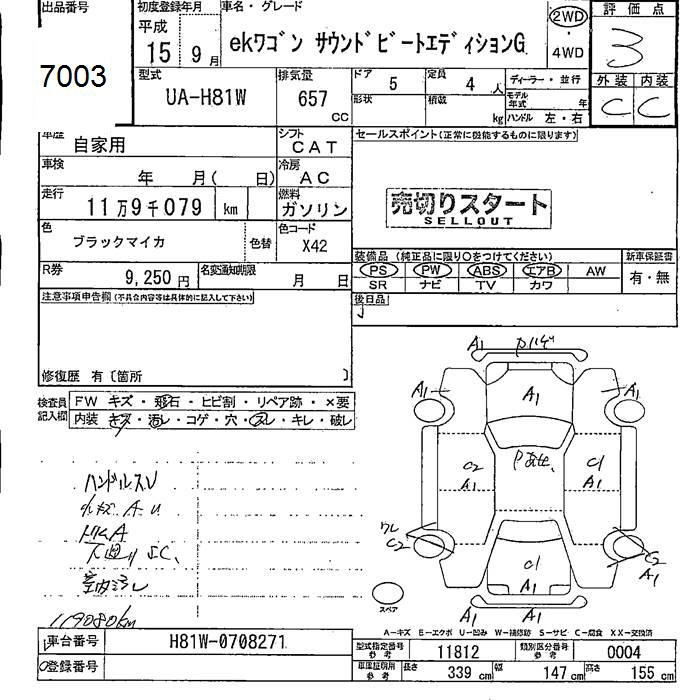 出品番号 初度登録年月 車名・グレード 2WD 評価点
平成
15 9月 ekワゴン サウンドビートエディションG ・ 3
4WD
7003 型式 排気量 ドア 5 定員 4人 ディーラー・並行 外装 内装
UA-H81W 657 CC 形状 積載 kg モデル年式 年 C C
ハンドル 左・右
車歴 自家用 シフト CAT セールスポイント(正常に機能するものに限ります)
車検 年 月( 日) 冷房 AC
走行 11万9千079 km 燃料 ガソリン 売切りスタート
SELLOUT
色 ブラックマイカ 色替 色コード X42
装備品(純正品に限り○をつけてください) 新車保証書
R券 9,250円 名変通知期限 月 日 PS PW ABS エアB AW 有・無
SR ナビ TV カワ
注意事項申告欄(不具合内容等は具体的に記入して下さい) 後日品
修復歴 有〔箇所 〕
検査員記入欄 FW キズ・飛石・ヒビ割・リペア跡・×要
内装 キズ・汚レ・コゲ・穴・スレ・キレ・破レ
ハンドルスレ
A U
A
下廻り S.C.
室内汚レ
119080km
A1
A1 A1 A1
C2 A1 C1 A1
ワレ C2 C1 A1 C2 A1
A1 A1
スペア
A-キズ E-エクボ U-凹み W-補修跡 S-サビ C-腐食 XX-交換済
車台番号 H81W-0708271 型式指定番号 参考 11812 類別区分番号 参考 0004
登録番号 参考 長さ 339 cm 幅 147 cm 高さ 155 cm